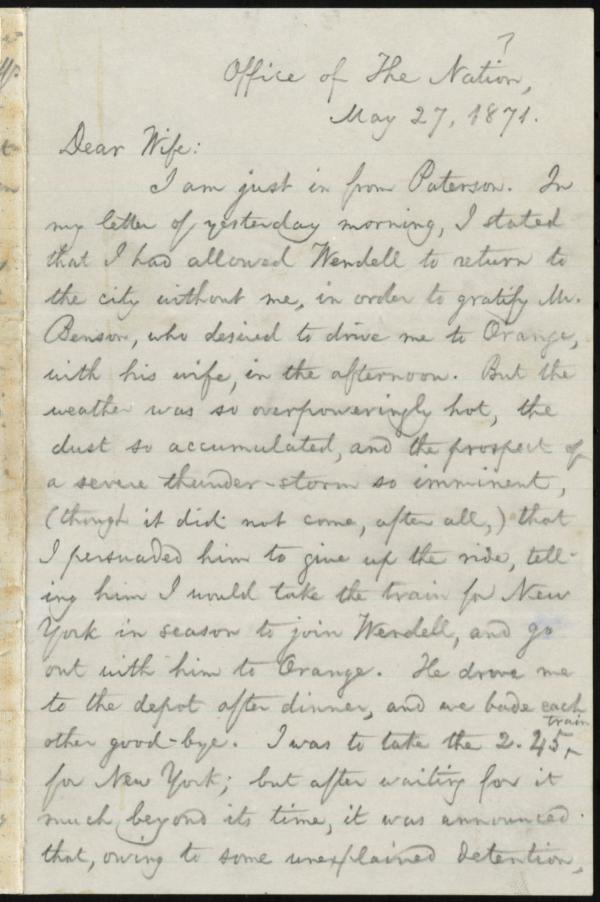 ?
Office of The Nation,
May 27, 1871.
Dear Wife:
I am just in from Paterson. In
my letter of yesterday morning, I stated
that I had allowed Wendell to return to
the city without me, in order to gratify Mr.
Benson, who desired to drive me to Orange,
with his wife, in the afternoon. But the
weather was so overpoweringly hot, the
dust so accumulated, and the prospect of
a severe thunder-storm so imminent,
(though it did not come, after all,) that
I persuaded him to give up the ride, tell-
ing him I would take the train for New
York in season to join Wendell, and go
out with him to Orange. He drove me
to the depot after dinner, and we bade each
train
other good-bye. I was to take the 2.45
for New York; but after waiting for it
much beyond its time, it was announced
that, owing to some unexplained detention,